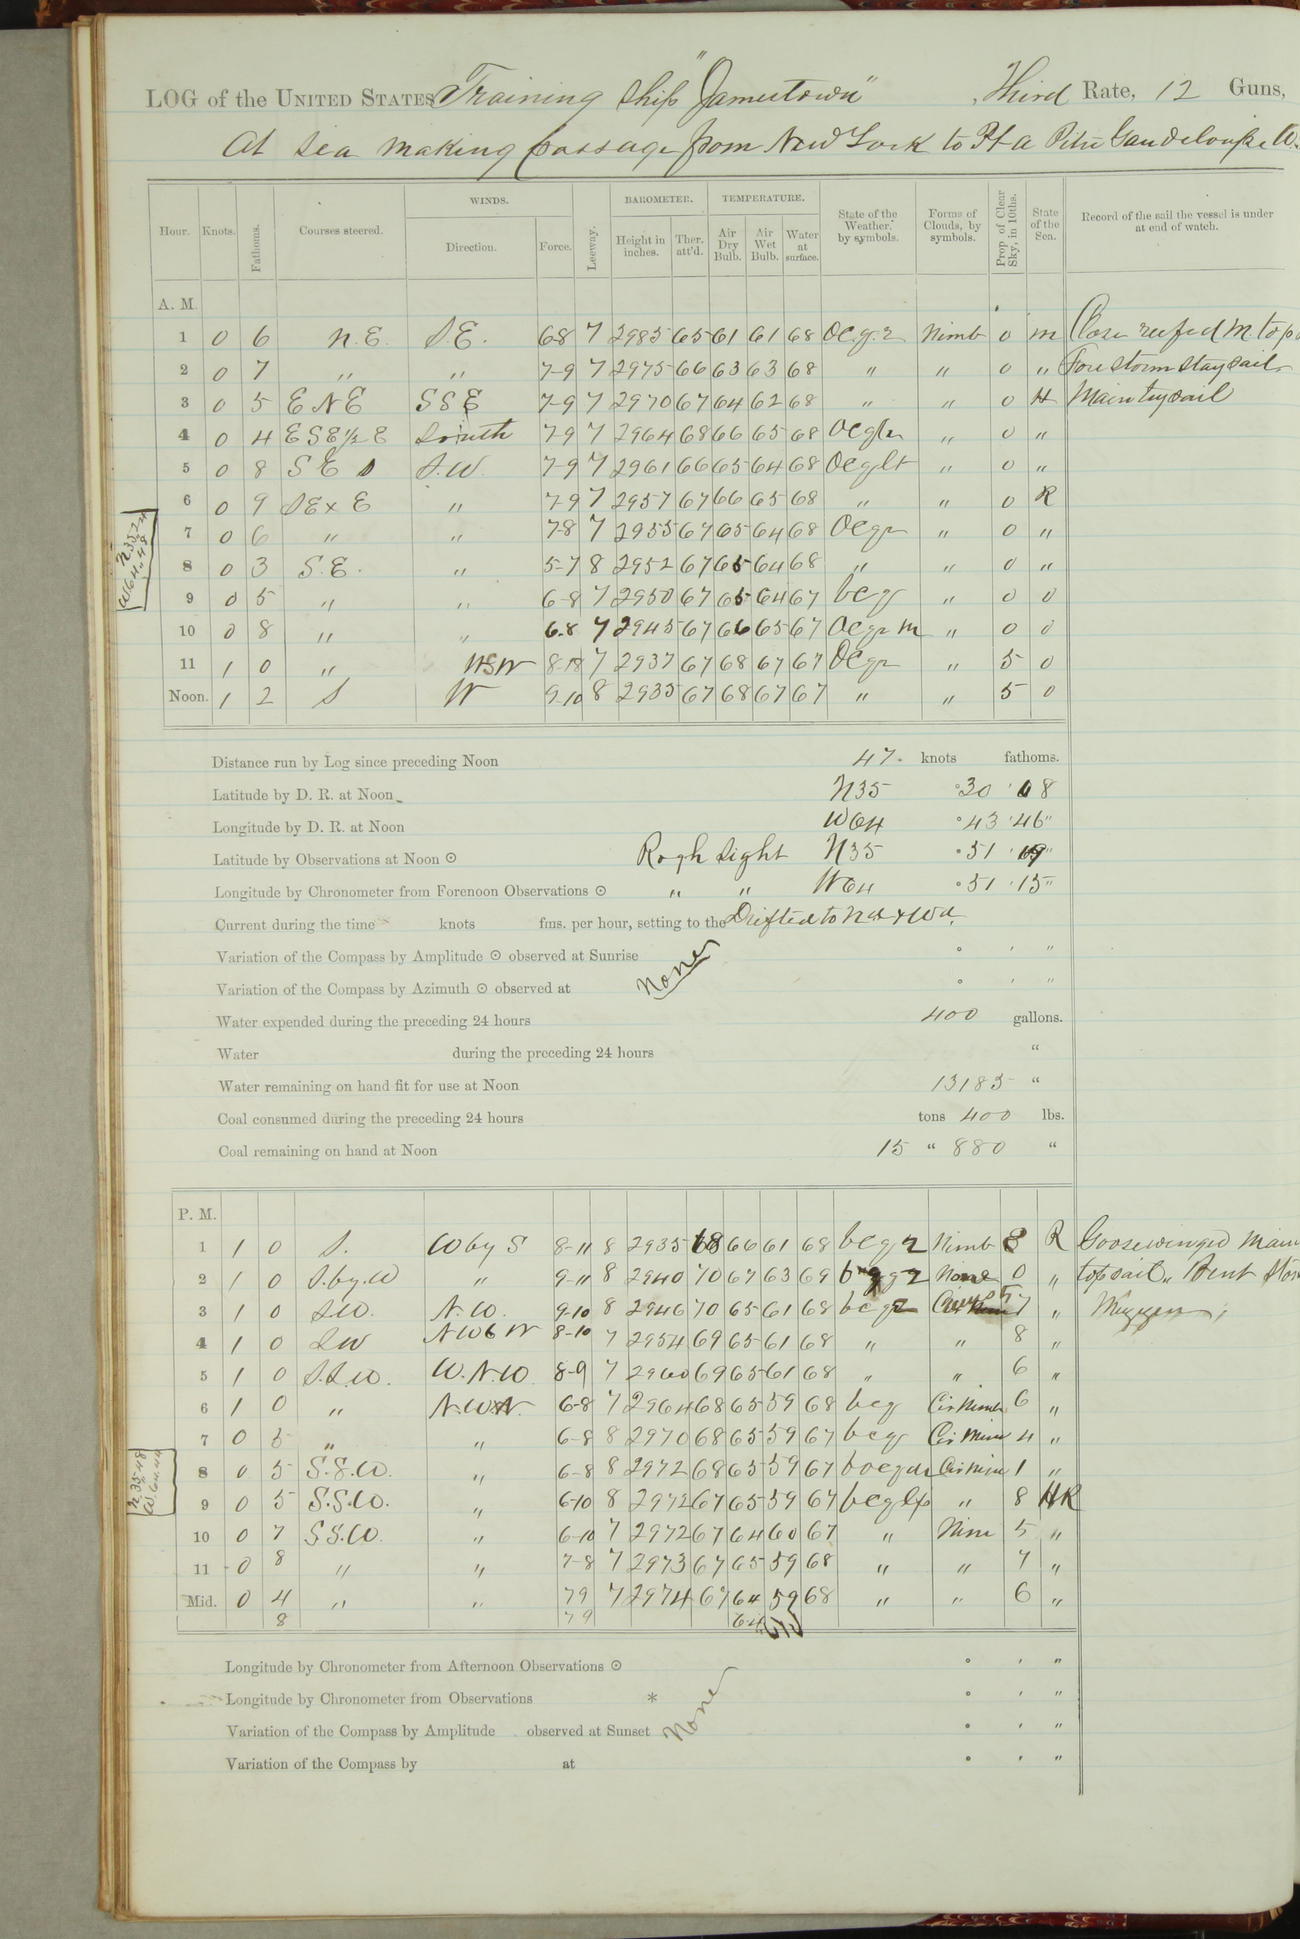 LOG of the UNITED STATES Training Ship "Jamestown", Third Rate, 12 Guns,
At Sea making passage from New York to Pt a Pitre
Hour. Knots. Fathoms. Courses steered. WINDS. Direction. Force. Leeway. BAROMETER. Height in inches. Ther. att'd. TEMPERATURE. Air Dry Bulb. Air Wet Bulb. Water at surface. State of the Weather, by symbols. Forms of Clouds, by symbols. Prop. of Clear Sky, in 10ths. State of the Sea. Record of the sail the vessel is under at end of watch.
A. M.
1 0 6 N.E. S.E. 6-8 7 2985 65 61 61 68 Nimb 0 m Close reefed M. tops
2 0 7 " " 7-9 7 2975 66 63 63 68 " " 0 " Fore storm staysail
3 0 5 ENE SSE 7-9 7 2970 67 64 62 68 " " 0 H Main trysail
4 0 4 ESE½E South 7-9 7 2964 68 66 65 68 " 0 "
5 0 8 SE S.W. 7-9 7 2961 66 65 64 68 " 0 "
6 0 9 SExE " 7-9 7 2957 67 66 65 68 " " 0 R
7 0 6 " " 7-8 7 2955 67 65 64 68 Ocgr " 0 "
8 0 3 S.E. " 5-7 8 2952 67 65 64 68 " " 0 "
9 0 5 " " 6-8 7 2950 67 65 64 67 bcg " 0 0
10 0 8 " " 6-8 7 2945 67 66 65 67 Ocgrm " 0 0
11 1 0 " WSW 8-10 7 2937 67 68 67 67 Ocgr " 5 0
Noon. 1 2 S W 9-10 8 2935 67 68 67 67 " " 5 0
N 35-24
W 64-48
Distance run by Log since preceding Noon 47. knots fathoms.
Latitude by D. R. at Noon N35 ° 30 ' 08
Longitude by D. R. at Noon W64 ° 43 ' 46"
Latitude by Observations at Noon ⊙ Rogh Sight N35 ° 51 ' 19"
Longitude by Chronometer from Forenoon Observations ⊙ " " W64 ° 51 ' 15"
Current during the time knots fms. per hour, setting to the Drifted to Nd & Wd.
Variation of the Compass by Amplitude ⊙ observed at Sunrise None ° ' "
Variation of the Compass by Azimuth ⊙ observed at ° ' "
Water expended during the preceding 24 hours 400 gallons.
Water during the preceding 24 hours "
Water remaining on hand fit for use at Noon 13185 "
Coal consumed during the preceding 24 hours tons 400 lbs.
Coal remaining on hand at Noon 15 " 880 "
P. M.
1 1 0 S. W by S 8-11 8 2935 68 66 61 68 bcgq Nimb 8 R Goosewinged Main
2 1 0 S.by.W " 9-11 8 2940 70 67 63 69 None 0 " topsail. Bent Stor
3 1 0 S.W. N.W. 9-10 8 2946 70 65 61 68 bcgq 7 " Mizzen
4 1 0 SW NWbW 8-10 7 2954 69 65 61 68 " " 8 "
5 1 0 S.S.W. W.N.W. 8-9 7 2960 69 65 61 68 " " 6 "
6 1 0 " 6-8 7 2964 68 65 59 68 bcg Cir Nimb 6 "
7 0 5 " " 6-8 8 2970 68 65 59 67 bcg Cir Nim 4 "
8 0 5 S.S.W. " 6-8 8 2972 68 65 59 67 Cir Nim 1 "
9 0 5 S.S.W. " 6-10 8 2972 67 65 59 67 bcglp " 8 HR
10 0 7 SS.W. " 6-10 7 2972 67 64 60 67 " Nim 5 "
11 0 8 " " 7-8 7 2973 67 65 59 68 " " 7 "
Mid. 0 4 " " 79 7 2974 67 64 59 68 " " 6 "
8 79 64
N 35-48
W 64-44
Longitude by Chronometer from Afternoon Observations ⊙ ° ' "
Longitude by Chronometer from Observations * None ° ' "
Variation of the Compass by Amplitude observed at Sunset ° ' "
Variation of the Compass by at ° ' "